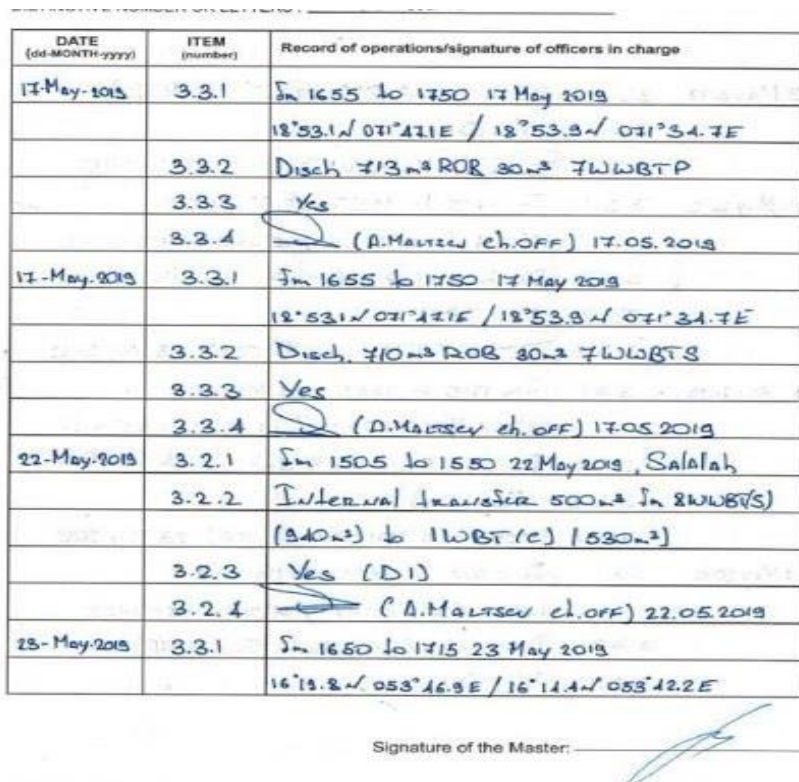 DATE ITEM Record of operations/signature of officers in charge
(dd-MONTH-yyyy) (number)
17-May-2019 3.3.1 fm 1655 to 1750 17 May 2019
18°53.1N 071°47.1E / 18°53.9N 071°34.7E
3.3.2 Disch 713m³ ROB 30m³ 7WWBTP
3.3.3 Yes
3.3.4 (A.MALTSEV ch.OFF) 17.05.2019
17-May.2019 3.3.1 fm 1655 to 1750 17 May 2019
18°53.1N 071°47.1E / 18°53.9N 071°34.7E
3.3.2 Disch. 710m³ ROB 30m³ 7WWBTS
3.3.3 Yes
3.3.4 (A.MALTSEV ch.OFF) 17.05 2019
22-May-2019 3.2.1 fm 1505 to 1550 22 May 2019, Salalah
3.2.2 Internal transfer 500m³ fm 8WWBT(S)
(940m³) to 1WBT(C) (530m³)
3.2.3 Yes (D1)
3.2.4 (A.MALTSEV ch.OFF) 22.05.2019
23-May-2019 3.3.1 fm 1650 to 1715 23 May 2019
16°19.8N 053°46.9E / 16°14.4N 053°42.2E
Signature of the Master: